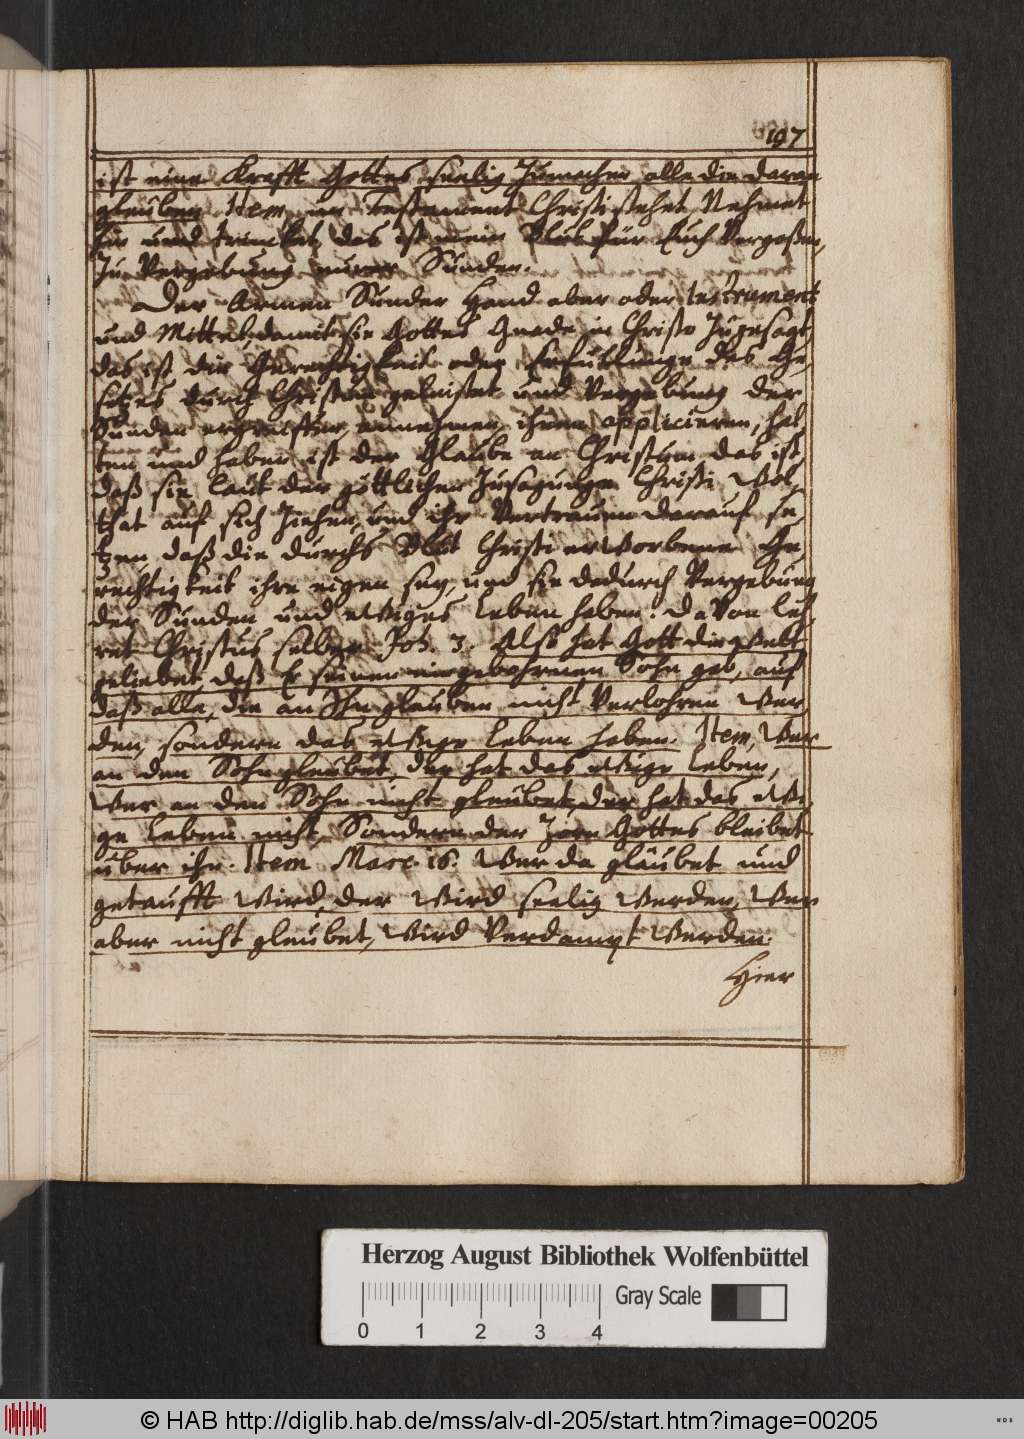 197
ist eine Krafft Gottes seelig Zumachen alle die daran
gleuben Item im Testament Christi stehet Nehmet
hin und trincket, das ist mein Blut für Euch Vergoßen,
Zu Vergebung eurer Sünden.
Der Armen Sünder Hand aber oder Instrument
und Mittel, damit sie Gottes Gnade in Christo Zugesagt
das ist die Gerechtigkeit oder Erfüllunge des Ge,
setzes durch Christum geleistet und Vergebung der
Sünden ergreiffen, annehmen, ihnen appliciren, hal,
ten und haben ist der Glaube an Christum das ist,
daß sie laut der göttlichen Zusagunge Christi Wol,
that auf sich Ziehen, und ihr Vertrauen darauf se,
tzen, daß die durchs Blut Christi erworbene Ge,
rechtigkeit ihre eigen sey, und sie dadurch Vergebung
der Sünden und ewiges Leben haben. Davon leh,
ret Christus selber Joh. 3. Also hat Gott die Welt
geliebet, daß Er seinen eingebohrnen Sohn gab, auf
daß alle, die an Ihn glauben nicht Verlohren Wer,
den, sondern das ewige Leben haben. Item, Wer
an den Sohn gleubet, der hat das ewige Leben,
Wer an den Sohn nicht gleubet, der hat das ewi,
ge Leben nicht, Sondern der Zorn Gottes bleibet
über ihn. Item Marc. 16. Wer da gläubet und
getaufft Wird, der Wird seelig Werden, Wer
aber nicht gleubet, Wird Verdampt Werden.
Hier
Herzog August Bibliothek Wolfenbüttel
0 1 2 3 4
Gray Scale
© HAB http://diglib.hab.de/mss/alv-dl-205/start.htm?image=00205
WDB